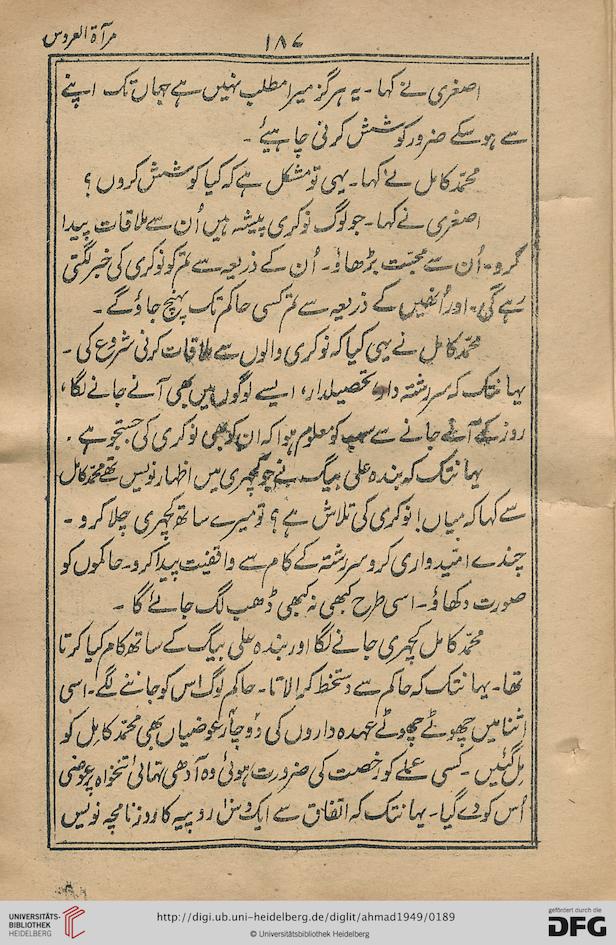 مرآۃ العروس
۱۸۷
اصغری نے کہا۔ یہ ہرگز میرا مطلب نہیں ہے جہاں تک اپنے
سے ہوسکے ضرور کوشش کرنی چاہیئے۔
محمّد کامل نے کہا۔ یہی تو مشکل ہے کہ کیا کوشش کروں؟
اصغری نے کہا۔ جو لوگ نوکری پیشہ ہیں اُن سے ملاقات پیدا
کرو۔ اُن سے محبّت بڑھاؤ۔ اُن کے ذریعہ سے تم کو نوکری کی خبر لگتی
رہے گی۔ اور اُنھیں کے ذریعہ سے تم کسی حاکم تک پہنچ جاؤ گے۔
محمّد کامل نے یہی کیا کہ نوکری والوں سے ملاقات کرنی شروع کی۔
یہانتک کہ سررشتہ دار، تحصیلدار، ایسے لوگوں میں بھی آنے جانے لگا،
روز کے آنے جانے سے سب کو معلوم ہوا کہ ان کو بھی نوکری کی جستجو ہے۔
یہانتک کہ بندہ علی بیگ نے جو کچہری میں اظہار نویس تھے محمّد کامل
سے کہا کہ میاں! نوکری کی تلاش ہے؟ تو میرے ساتھ کچہری چلا کرو۔
چندے امّیدواری کرو سررشتہ کے کام سے واقفیت پیدا کرو۔ حاکموں کو
صورت دکھاؤ۔ اسی طرح کبھی نہ کبھی ڈھب لگ جائے گا۔
محمّد کامل کچہری جانے لگا اور بندہ علی بیگ کے ساتھ کام کیا کرتا
تھا۔ یہانتک کہ حاکم سے دستخط کرا لاتا۔ حاکم لوگ اس کو جاننے لگے۔ اسی
اثنا میں چھوٹے چھوٹے عہدہ داروں کی دو چار عوضیاں بھی محمّد کامل کو
مل گئیں۔ کسی عملے کو رخصت کی ضرورت ہوئی وہ آدھی تہائی تنخواہ پر عوضی
اُس کو دے گیا۔ یہانتک کہ اتفاق سے ایک دس روپیہ کا روزنامچہ نویس
UNIVERSITÄTS-
BIBLIOTHEK
HEIDELBERG
http://digi.ub.uni-heidelberg.de/diglit/ahmad1949/0189
© Universitätsbibliothek Heidelberg
gefördert durch die
DFG